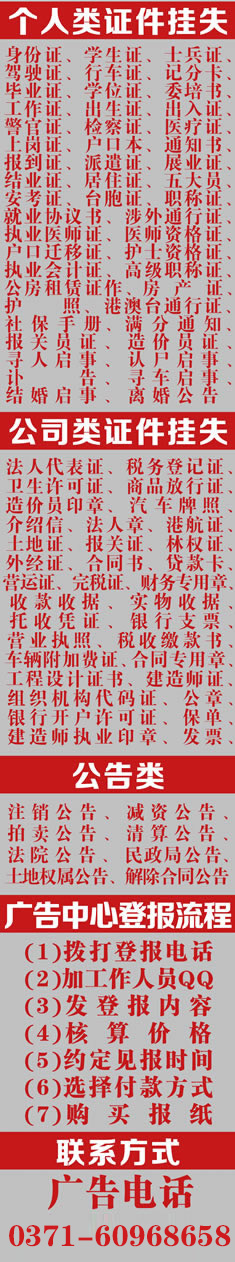 个人类证件挂失
身份证、学生证、士兵证、
驾驶证、行车证、记分卡
毕业证、学位证、委培书
工作证、出生证、出入证、
警官证、检察证、医疗证、
上岗证、户口本、通知书
报到证、派遣证、展业证、
结婚证、居住证、五大证、
安考证、台胞证、职称证、
就业协议书、涉外通行证、
执业医师证、师资格证、
户口迁移证、士资格证、
执业会计证、高级职称证、
公房租赁证、房产证
护照、港澳台通行证、
社保手册、满分通知
报关员证、造价员证
寻人启事、认尸启事
讣告、寻车启
结婚启事、离婚公告
公司类证件挂失
法人代表证、税务登记证、
卫生许可证、商品放行证、
造价员印章、汽车牌照、
介绍信、法人章、港航证、
土地证、报关证、林权证、
外经证、合同书、贷款卡、
营运证、完税证、财务专用章、
收款收据、实物收据、
托收凭证、银行支票、
营业执照、税收缴款书
车辆附加费证、合同专用章、
工程设计证书、建造师证、
组织机构代码证、公章、
银行开户许可证、保单、
建造师执业印章、发票、
公告类
注销公告、减资公告、
拍卖公告、清算公告、
法院公告、民政局公告、
土地权属公告、解除合同公告
广告中心登报流程
(1)拨打登报电话
(2)加工作人员QQ
(3)发登报内容
(4)核算价格
(5)约定见报时间
(6)选择付款方式
(7)购买报纸
联系方式
广告电话
0371-60968658